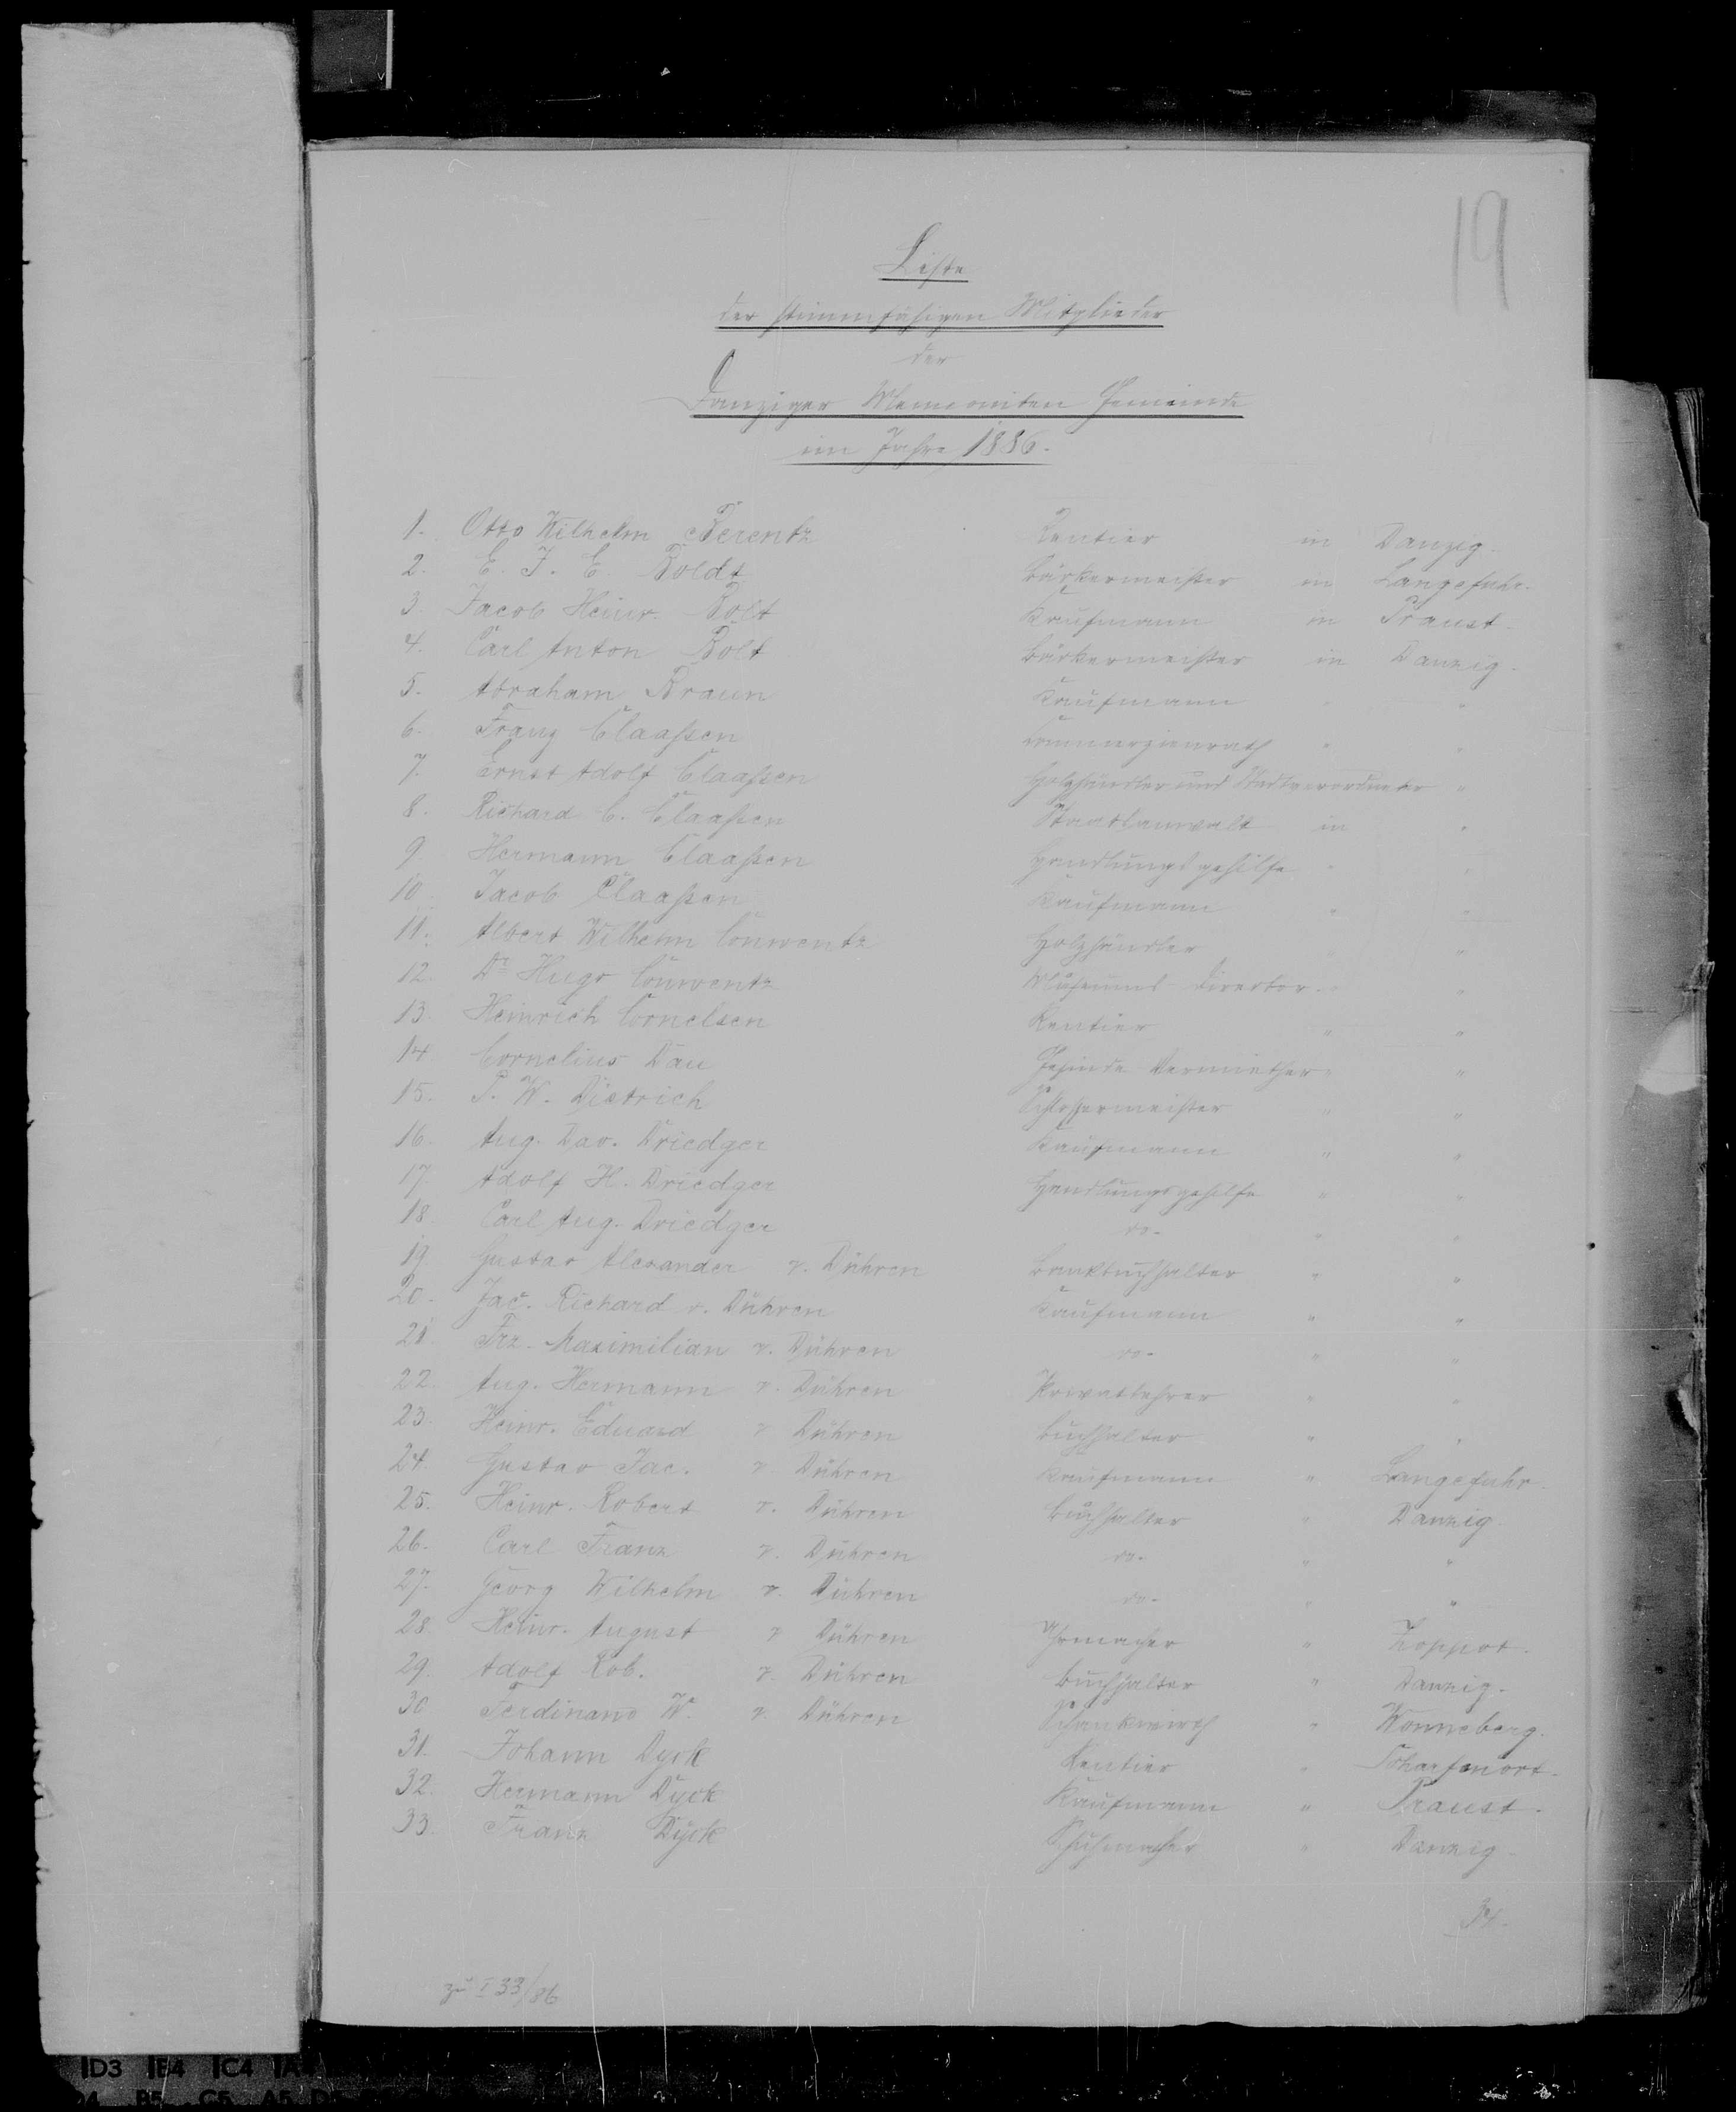 19
Liste
der stimmfähigen Mitglieder
der
Danziger Mennoniten Gemeinde
im Jahre 1886.
1. Otto Wilhelm Berentz Rentier in Danzig.
2. E. F. E. Boldt Bäckermeister in Langefuhr.
3. Jacob Heinr. Bolt Kaufmann in Praust.
4. Carl Anton Bolt Bäckermeister in Danzig.
5. Abraham Braun Kaufmann " "
6. Franz Claaßen Commerzienrath " "
7. Ernst Adolf Claaßen Holzhändler und Stadtverordneter "
8. Richard C. Claaßen Staatsanwalt in "
9. Hermann Claaßen Handlungsgehilfe " "
10. Jacob Claaßen Kaufmann " "
11. Albert Wilhelm Conwentz Holzhändler " "
12. Dr Hugo Conwentz Museums-Director " "
13. Heinrich Cornelsen Rentier " "
14. Cornelius Dau Gesinde Vermiether " "
15. P. W. Dietrich Schlossermeister " "
16. Aug. Dav. Driedger Kaufmann " "
17. Adolf H. Driedger Handlungsgehilfe " "
18. Carl Aug. Driedger do. " "
19. Gustav Alexander v. Dühren Bankbuchhalter " "
20. Jac. Richard v. Dühren Kaufmann " "
21. Frz. Maximilian v. Dühren do. " "
22. Aug. Hermann v. Dühren Privatlehrer " "
23. Heinr. Eduard v. Dühren Buchhalter " "
24. Gustav Jac. v. Dühren Kaufmann " Langefuhr.
25. Heinr. Robert v. Dühren Buchhalter " Danzig.
26. Carl Franz v. Dühren do. " "
27. Georg Wilhelm v. Dühren do. " "
28. Heinr. August v Dühren Uhrmacher " Zoppot.
29. Adolf Rob. v. Dühren Buchhalter " Danzig.
30. Ferdinand W. v. Dühren Schankwirth " Wonneberg.
31. Johann Dyck Rentier " Scharfenort.
32. Hermann Dyck Kaufmann " Praust.
33. Franz Dyck Schuhmacher " Danzig.
34.
zu I 33/86
D3 E4 C4
B5 C5 A5